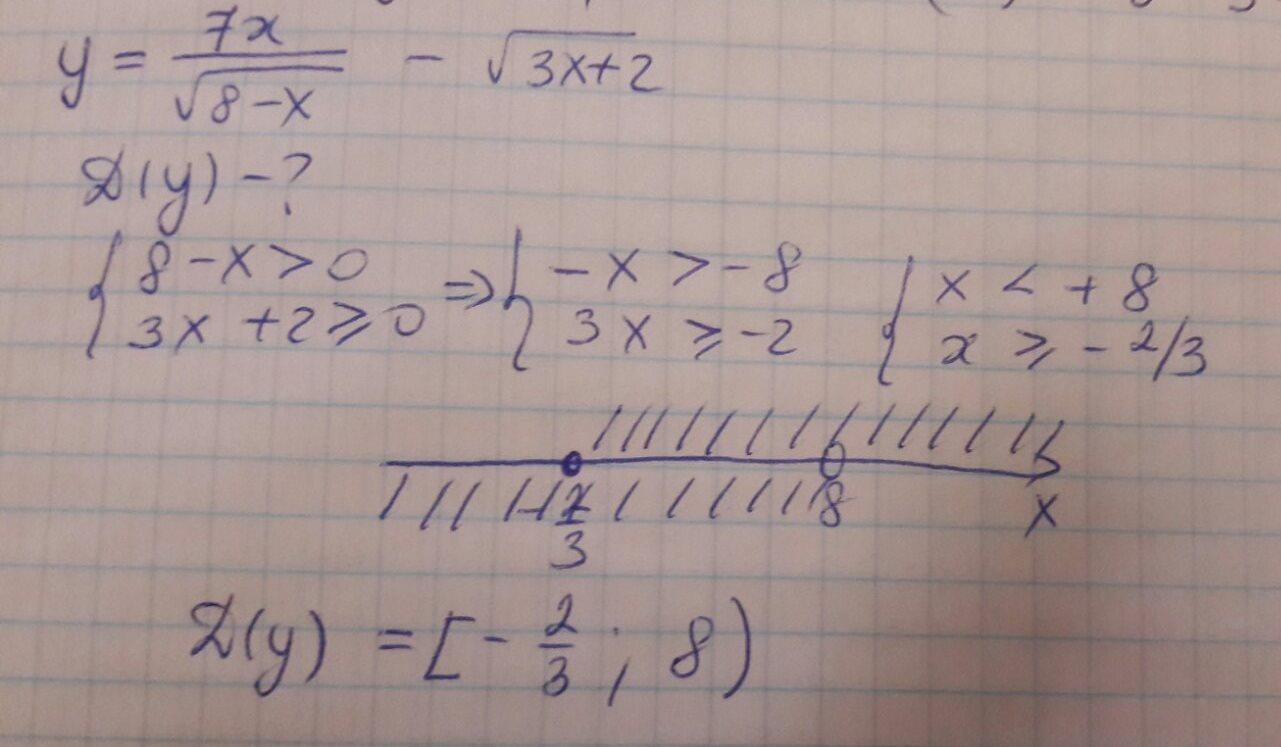 y = 7x/√(8-x) - √(3x+2)
D(y) - ?
{ 8-x > 0 ⇒ { -x > -8 { x < +8
{ 3x+2 ≥ 0 { 3x ≥ -2 { x ≥ -2/3
-2/3 8 x
D(y) = [-2/3; 8)